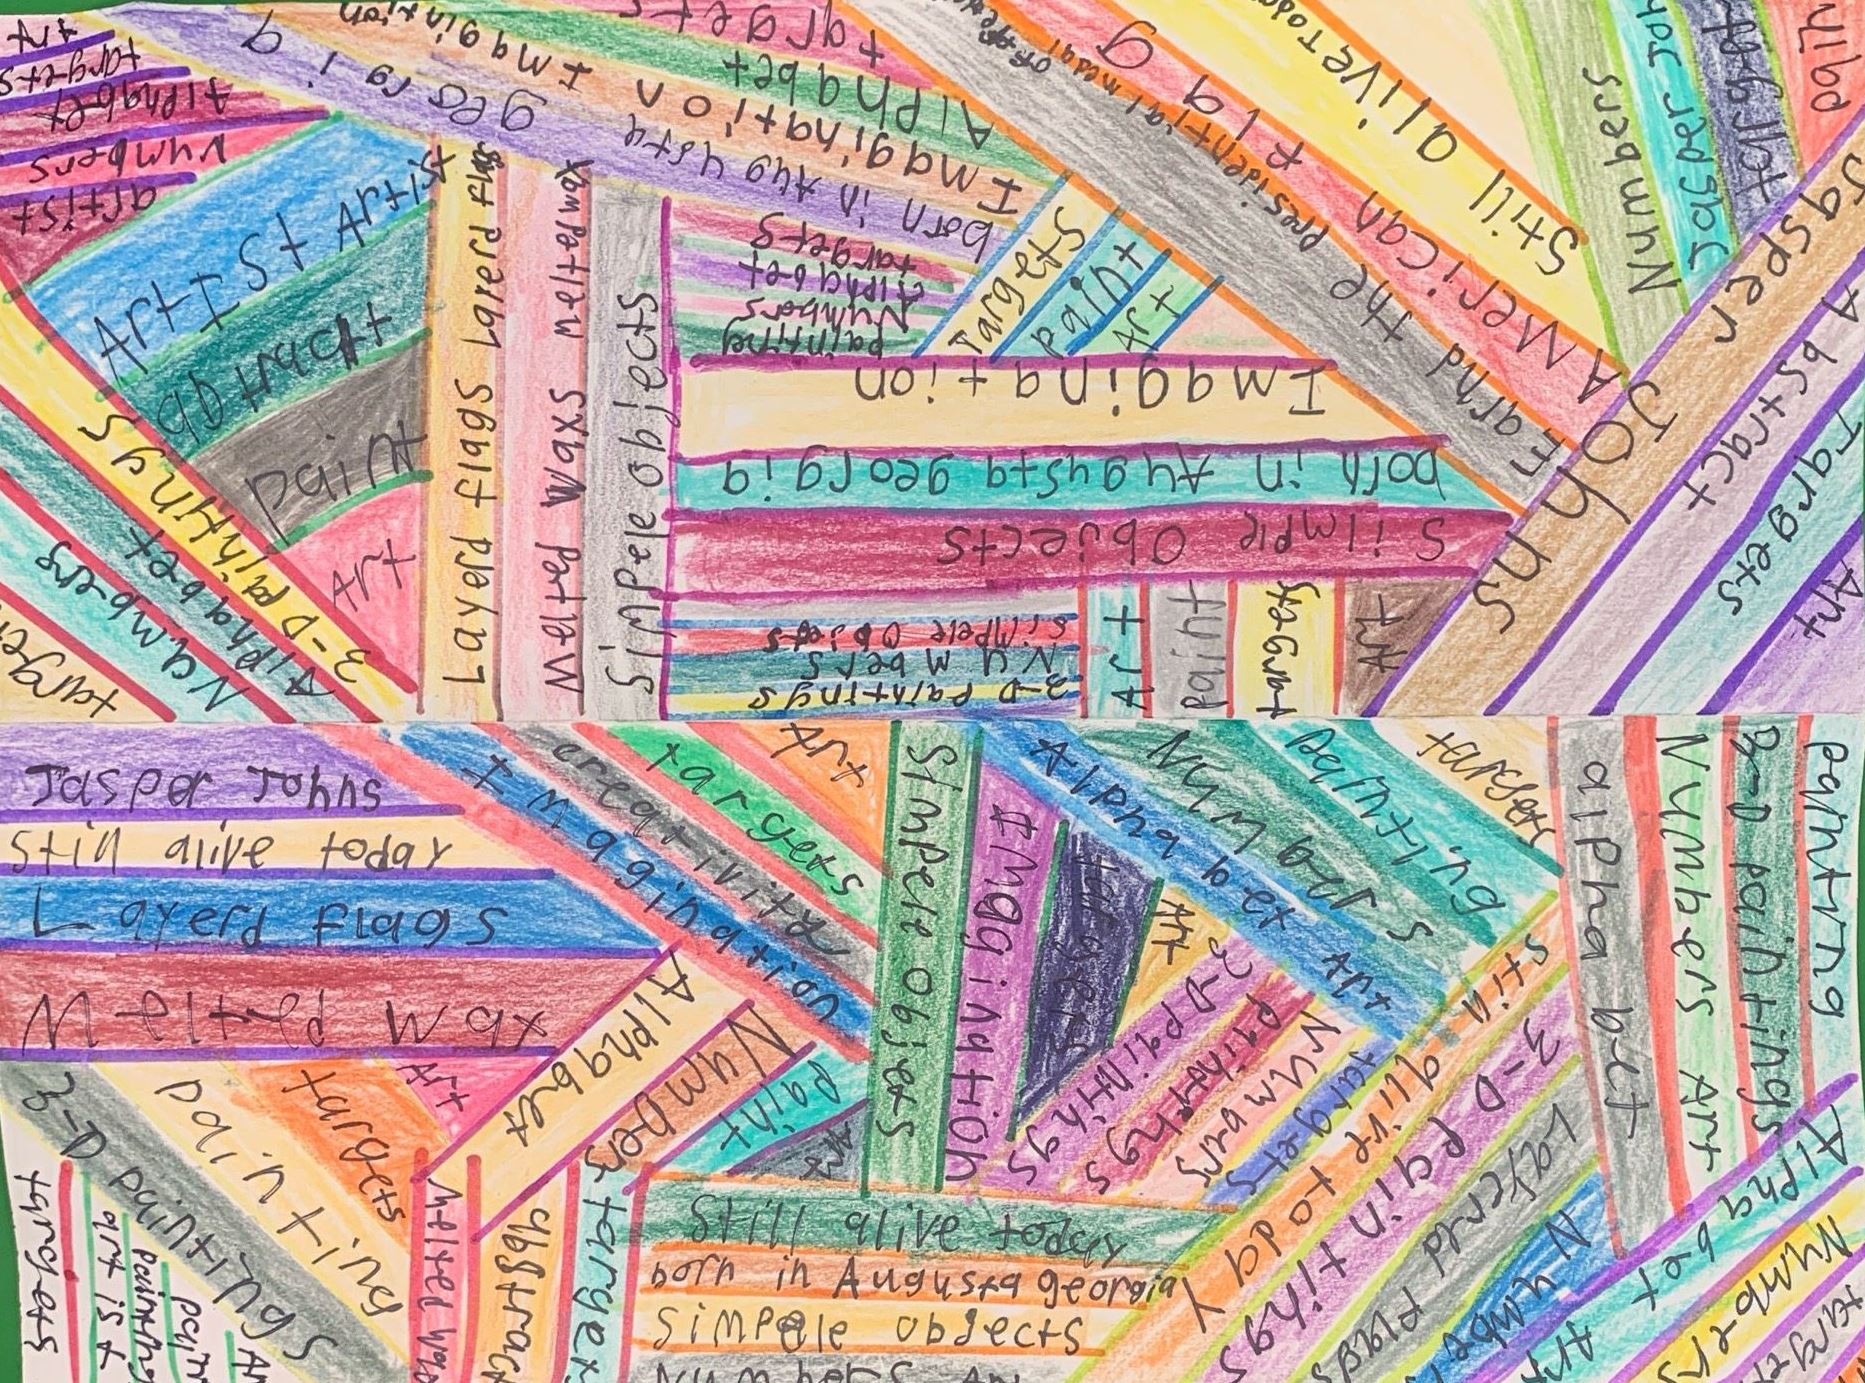 Art
targets
Alphabet
Numbers
artist
Artist Artist
abtract
paint
Art
3-D painting
Alphabet
Numbers
Layerd flags Layerd flags
Melted Waxs meltedwax
simpele objects
born in Augusta georgia
Imagination Imagination
Alphabet
targets
targets
Alphabet
Numbers
painting
Targets
paint
Art
Imagination
born in Augusta georgia
Silmple Objects
simpele Objects
Numbers
3-D Paintings
Art
paint
targets
Art
American Flag
Still alive Today
Numbers
Jasper Joh
targets
Jasper Johns
Abstract
Targets
Art
Jasper Johns
Still alive today
Layerd flags
Melted wax
Imagination
creativity
targets
Art
Simpele objects
Imagination
targets
Art
Alphabet Art
Numbers
painting
targets
alphabet
Numbers Art
3-D paintings
painting
3-D paintings
painting
targets
Art
Alphabet
Numbers
paint
3-D paintings
paintings
Numbers
targets
Still alive today
3-D paintings
Layerd flags
Alphabet
Numbers
targets
artist
melted wax
abstract
targets
Still alive today
born in Augusta georgia
simpele objects